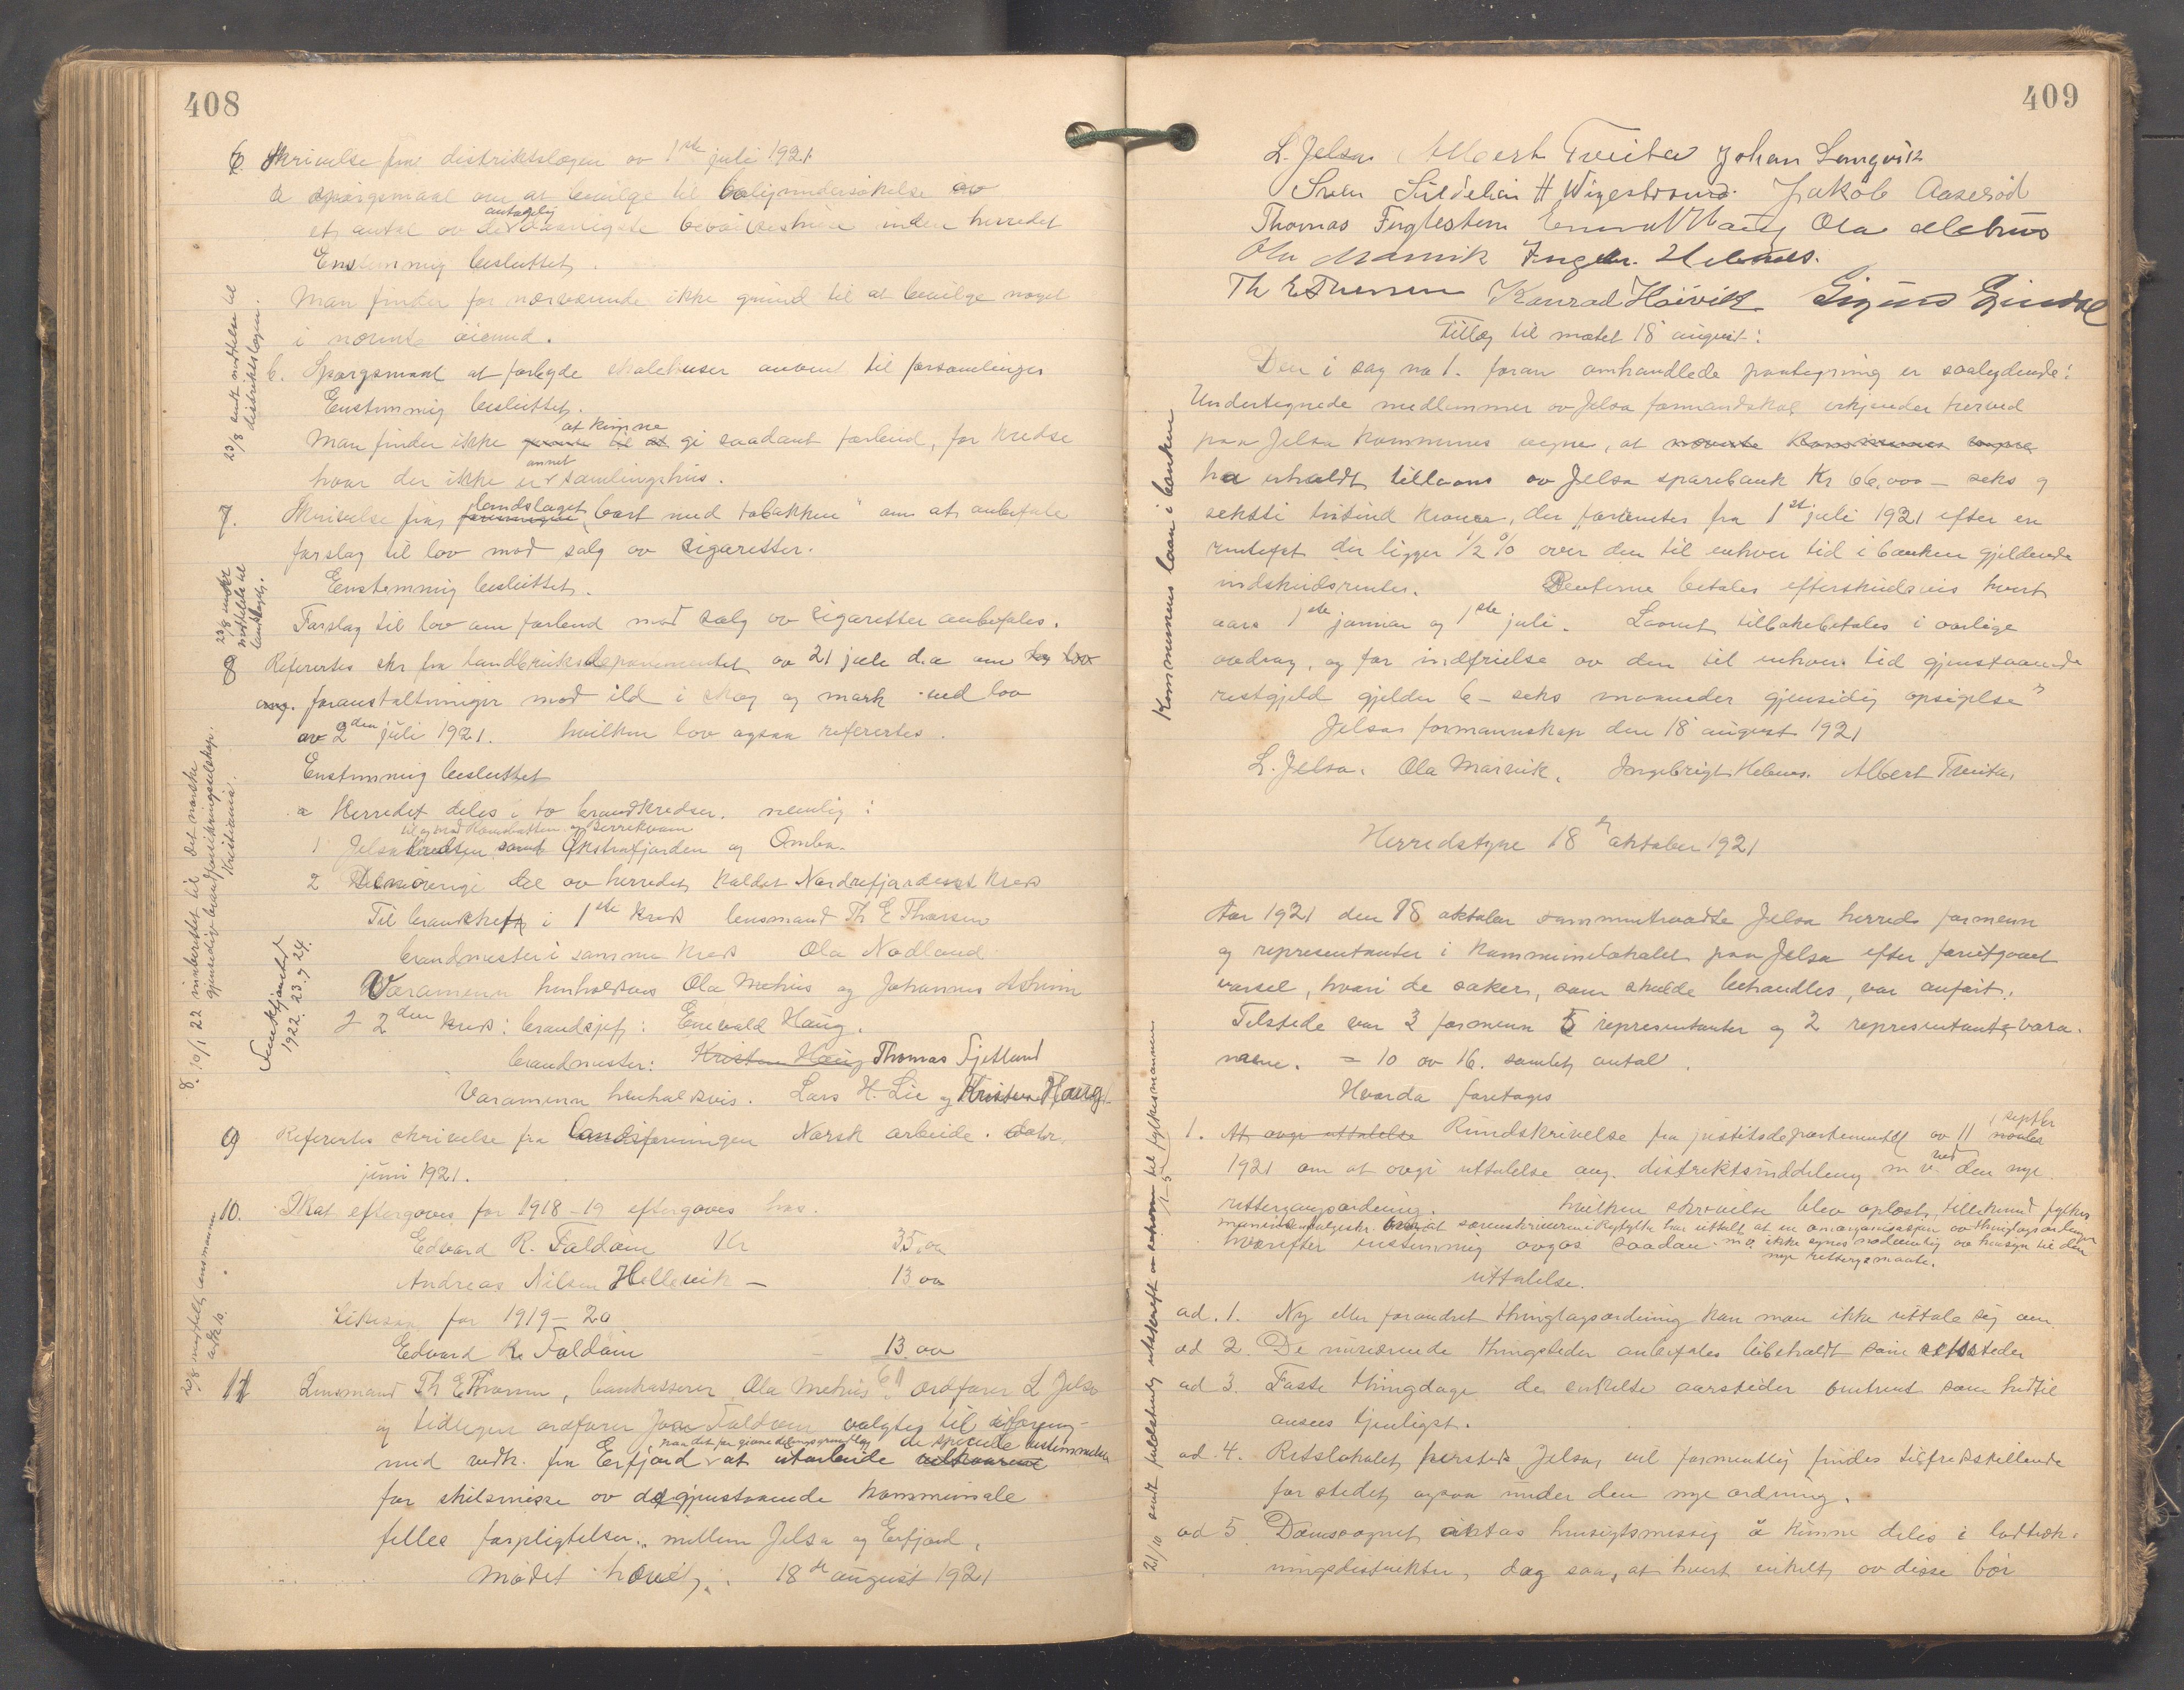 408
6 Skrivelse fra distriktslægen av 1ste juli 1921.
a spørgsmaal om at bevilge til boligundersøkelse av
et antal av de antagelig daarligste beboelseshuse inden herredet
Enstemmig besluttet.
Man finder for nærværende ikke grund til at bevilge noget
i nævnte øiemed.
b. Spørgsmaal at forbyde skolehuser anvent til forsamlinger
Enstemmig besluttet.
Man finder ikke at kunne gi saadant forbud, for kredse
hvor der ikke er annet samlingshus.
23/8 sendt meddelelse til
distriktslægen.
7. Skrivelse fra landslaget "bort med tobakken" om at anbefale
forslag til lov mod salg av sigaretter.
Enstemmig besluttet.
Forslag til lov om forbud mod salg av sigaretter anbefales.
23/8 sendt
meddelelse til
landslaget.
8 Refertes skr fra landbruksdepartementet av 21 juli d.a om
ang. foranstaltninger mod ild i skog og mark ved lov
av 2den juli 1921. hvilken lov ogsaa refertes.
Enstemmig besluttet
a Herredet deles i to brandkredser, nemlig:
til og med Kamsbotten og Berrekvam
1 Jelsakredsen samt Økstrafjorden og Ombo.
2 Den øvrige del av herredet kaldet Nordrefjordenes kreds
Til brandchef i 1ste kreds lensmand Th E Thorsen
brandmester i samme kreds Ola Nødland
Varamenn henholdsvis Ola Mehus og Johannes Askvim
I 2den kreds: brandsjef: Enevald Haug.
brandmester: Kristen Haug Thomas Fjetland
Varamenn henholdsvis. Lars H. Lie og Kristen Haug.
8. 10/1 22 innberettet til det norske
gjensidige brandforsikringsselskap.
Kristiania.
Senekjontrd
1922. 23. 7 24.
9 Refertes skrivelse fra landsforeningen Norsk arbeide. datr.
juni 1921.
10. Skat eftergoves for 1918-19 eftergoves hos.
Edvard R. Foldøin Kr 35,00
Andreas Nilsen Hellevik — 13 00
Likesaa for 1919-20
Edvard R. Foldøin 13 00
61
20/8 meddelt lensmannen
utskr.
11 Lensmand Th E Thorsen, bankkasserer Ola Mehus ordfører L Jelsa
og tidligere ordfører Joar Foldøen valgtes til
med vedk. fra Erfjord at utarbeide de specielle bestemmelser
for skilsmisse av de gjenstaaende kommunale
felles forpligtelser, mellem Jelsa og Erfjord.
Mødet hævet. 18de august 1921
409
L. Jelsa Albert Tveita Johan Langvik
Sven H Wigestrand Jakob Aaserød
Thomas Fuglestein Enevald Haug Ola Mehus
Ola Marvik Ingebr. Hebnes.
Th E Thorsen Konrad Høivik
Tillæg til møtet 18 august:
Den i sag no 1. foran omhandlede paategning er saalydende:
Undertegnede medlemmer av Jelsa formandskap erkjender herved
paa Jelsa kommunes vegne, at nævnte kommunes vegne
ha erholdt tillaans av Jelsa sparebank Kr 66,000 — seks og
seksti tusind kroner, der forrentes fra 1ste juli 1921 efter en
rentefot der ligger 1/2 % over den til enhver tid i banken gjeldende
indskudsrenter. Renterne betales efterskudsvis hvert
aars 1ste januar og 1ste juli. Laanet tilbakebetales i aarlige
avdrag, og for indfrielse av den til enhver tid gjenstaaende
restgjeld gjelder 6 — seks maaneder gjensidig opsigelse"
Jelsa formannskap den 18 august 1921
L. Jelsa. Ola Marvik. Ingebrigt Hebnes. Albert Tveita.
Kommunens laan i banken
Herredstyre 18de oktober 1921
Aar 1921 den 18 oktober sammentraadte Jelsa herreds formenn
og representanter i kommunelokalet paa Jelsa efter forutgaaet
varsel, hvori de saker, som skulde behandles, var anført.
Tilstede var 3 formenn 5 representanter og 2 representants vara-
menn. = 10 av 16. samlet antal.
Hvorda foretages
1. At avgi uttalelse Rundskrivelse fra justitsdepartementet av 11 septbr
1921 om at avgi uttalelse ang. distriktsinddeling m v. ved den nye
rettergangsordning. hvilken skrivelse blev oplæst, tillikemed fylkes
mannens følgeskr. om at sorenskriveren i Ryfylke har uttalt at en omorganisasjon av thinglagsordningen
m v. ikke synes nødvendig av hensyn til den
nye rettergsmaate.
hvorefter enstemmig avgas saadan
uttalelse.
ad. 1. Ny eller forandret thinglagsordning kan man ikke uttale sig om.
ad 2. De nuværende thingsteder anbefales bibeholdt som rettssteder
ad 3. Faste thingdage de enkelte aarstider omtrent som hidtil
ansees tjenligst.
ad. 4. Retslokalet paa Jelsa, vil formentlig findes tilfredsstillende
for stedet ogsaa under den nye ordning.
ad 5 Domssognet aktes hensigtsmessig å kunne deles i lodtræk-
ningsdistrikter, dog saa, at hvert enkelt av disse bør
21/10 sendt fuldstendig utskrift til fylkesmannen